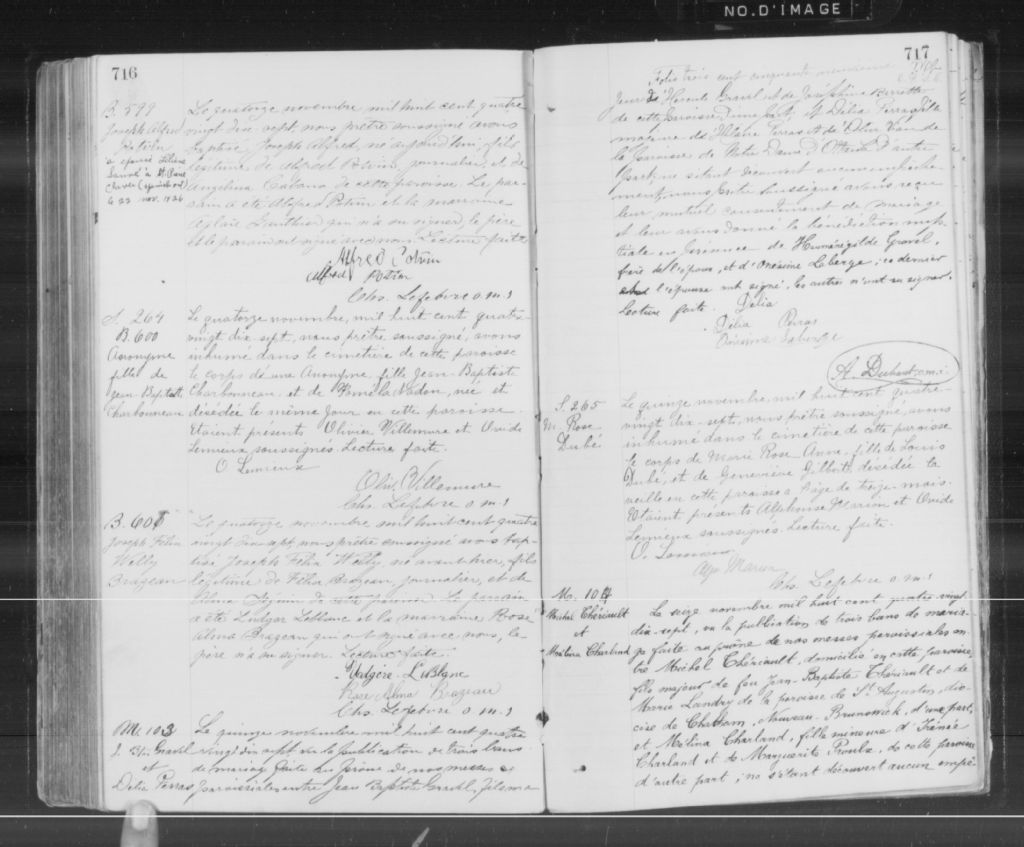 NO. D'IMAGE
716
B. 599
Joseph Alfred
Potvin
a épousé
à St. Paul
le 22 nov. 1926
Le quatorze novembre mil huit cent quatre
vingt dix sept, nous prêtre soussigné avons
baptisé Joseph Alfred, né aujourd'hui, fils
légitime de Alfred Potvin, journalier, et de
Angelina Cabana de cette paroisse. Le par-
rain a été Alfred Potvin et la marraine
Gauthier qui n'a su signer, le père
et le parrain ont signé avec nous. Lecture faite
Alfred Potvin
Alfred Potvin
Chs. Lefebvre o.m.i
S. 264
B. 600
Anonyme
fille de
Jean Baptiste
Charbonneau
Le quatorze novembre, mil huit cent quatre
vingt dix-sept, nous, prêtre soussigné, avons
inhumé dans le cimetière de cette paroisse
le corps d'une Anonyme, fille Jean-Baptiste
Charbonneau, et de Paméla Nadon, née et
décédée le même jour en cette paroisse.
Etaient présents Olivier Villemure et Ovide
Lemieux soussignés. Lecture faite.
O Lemieux
Oliv. Villemure
Chs. Lefebvre o m i
B. 601
Joseph Félix
Willy
Brazeau
Le quatorze novembre mil huit cent quatre
vingt dix sept, nous prêtre soussigné avons bap-
tisé Joseph Félix Willy, né avant hier, fils
légitime de Félix Brazeau, journalier, et de
Alma de cette paroisse. Le parrain
a été Ludger Leblanc et la marraine Rose
Alma Brazeau qui ont signé avec nous, le
père n'a su signer. Lecture faite.
Rose Alma Brazeau
Chs. Lefebvre o m i
M. 103
J. Bte Gravel
et
Delia Perras
Le quinze novembre mil huit cent quatre
vingt dix sept vu la publication de trois bans
de mariage faite au prône de nos messes
paroissiales entre Jean Baptiste Gravel, fils ma
717
Folio trois cent cinquante neuvième
jeur de Hercule Gravel et de Joséphine
de cette paroisse, d'une part, et Délia Perras, fille
majeure de Perras et de
la paroisse de Notre Dame d'Ottawa d'autre
part, ne s'étant découvert aucun empêche-
ment, nous, prêtre soussigné avons reçu
leur mutuel consentement de mariage
et leur avons donné la bénédiction nup-
tiale en présence de Herménégilde Gravel,
frère de l'époux, et d'Onésime Laberge; ce dernier
et l'épouse ont signé, les autres n'ont su signer.
Lecture faite. Délia
Délia Perras
Onésime Laberge
A. Duhaut o.m.i.
S. 265
M. Rose
Dubé
Le quinze novembre, mil huit cent quatre-
vingt dix-sept, nous, prêtre soussigné, avons
inhumé dans le cimetière de cette paroisse
le corps de Marie Rose Anna, fille de Louis
Dubé, et de Geneviève Gilbert, décédée la
veille en cette paroisse à l'âge de treize mois.
Etaient présents Alphonse Marion et Ovide
Lemieux soussignés. Lecture faite.
O. Lemieux
Alp. Marion
Chs. Lefebvre o m i
M. 104
Michel Thériault
et
Mélina Charland
Le seize novembre mil huit cent quatre-vingt
dix-sept, vu la publication de trois bans de maria-
ge faite au prône de nos messes paroissiales en-
tre Michel Thériault, domicilié en cette paroisse,
fils majeur de feu Jean-Baptiste Thériault et de
Marie Landry de la paroisse de St Augustin, dio-
cèse de Chatham, Nouveau-Brunswick, d'une part,
et Mélina Charland, fille mineure d'Irénée
Charland et de Marguerite Proulx, de cette paroisse
d'autre part; ne s'étant découvert aucun empê-